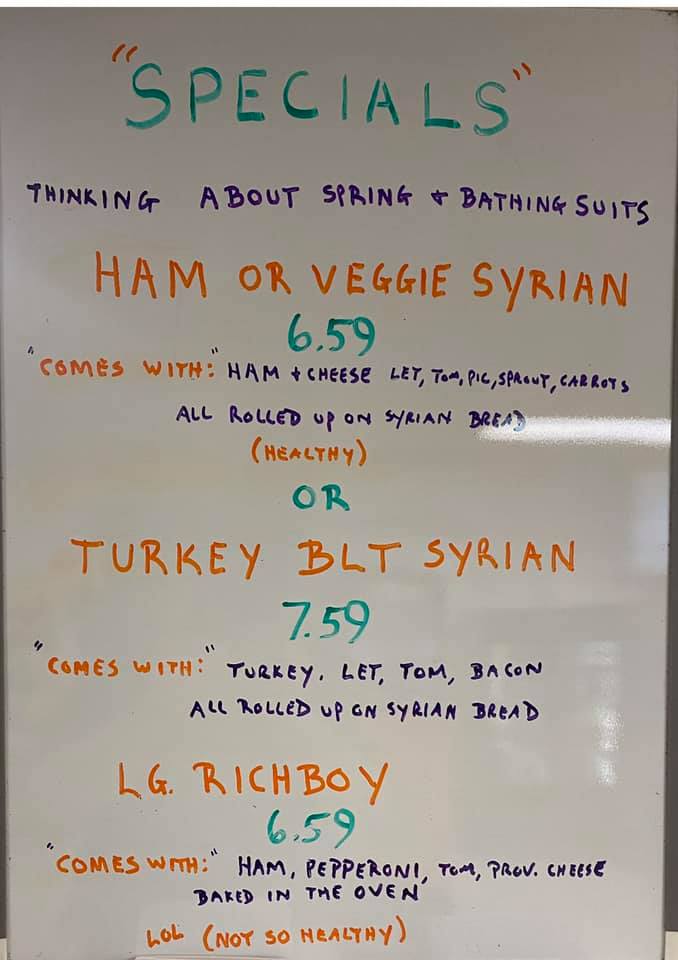 "SPECIALS"
THINKING ABOUT SPRING & BATHING SUITS
HAM OR VEGGIE SYRIAN
6.59
"COMES WITH:" HAM & CHEESE LET, TOM, PIC, SPROUT, CARROTS
ALL ROLLED UP ON SYRIAN BREAD
(HEALTHY)
OR
TURKEY BLT SYRIAN
7.59
"COMES WITH:" TURKEY, LET, TOM, BACON
ALL ROLLED UP ON SYRIAN BREAD
LG. RICHBOY
6.59
"COMES WITH:" HAM, PEPPERONI, TOM, PROV. CHEESE
BAKED IN THE OVEN
LOL (NOT SO HEALTHY)